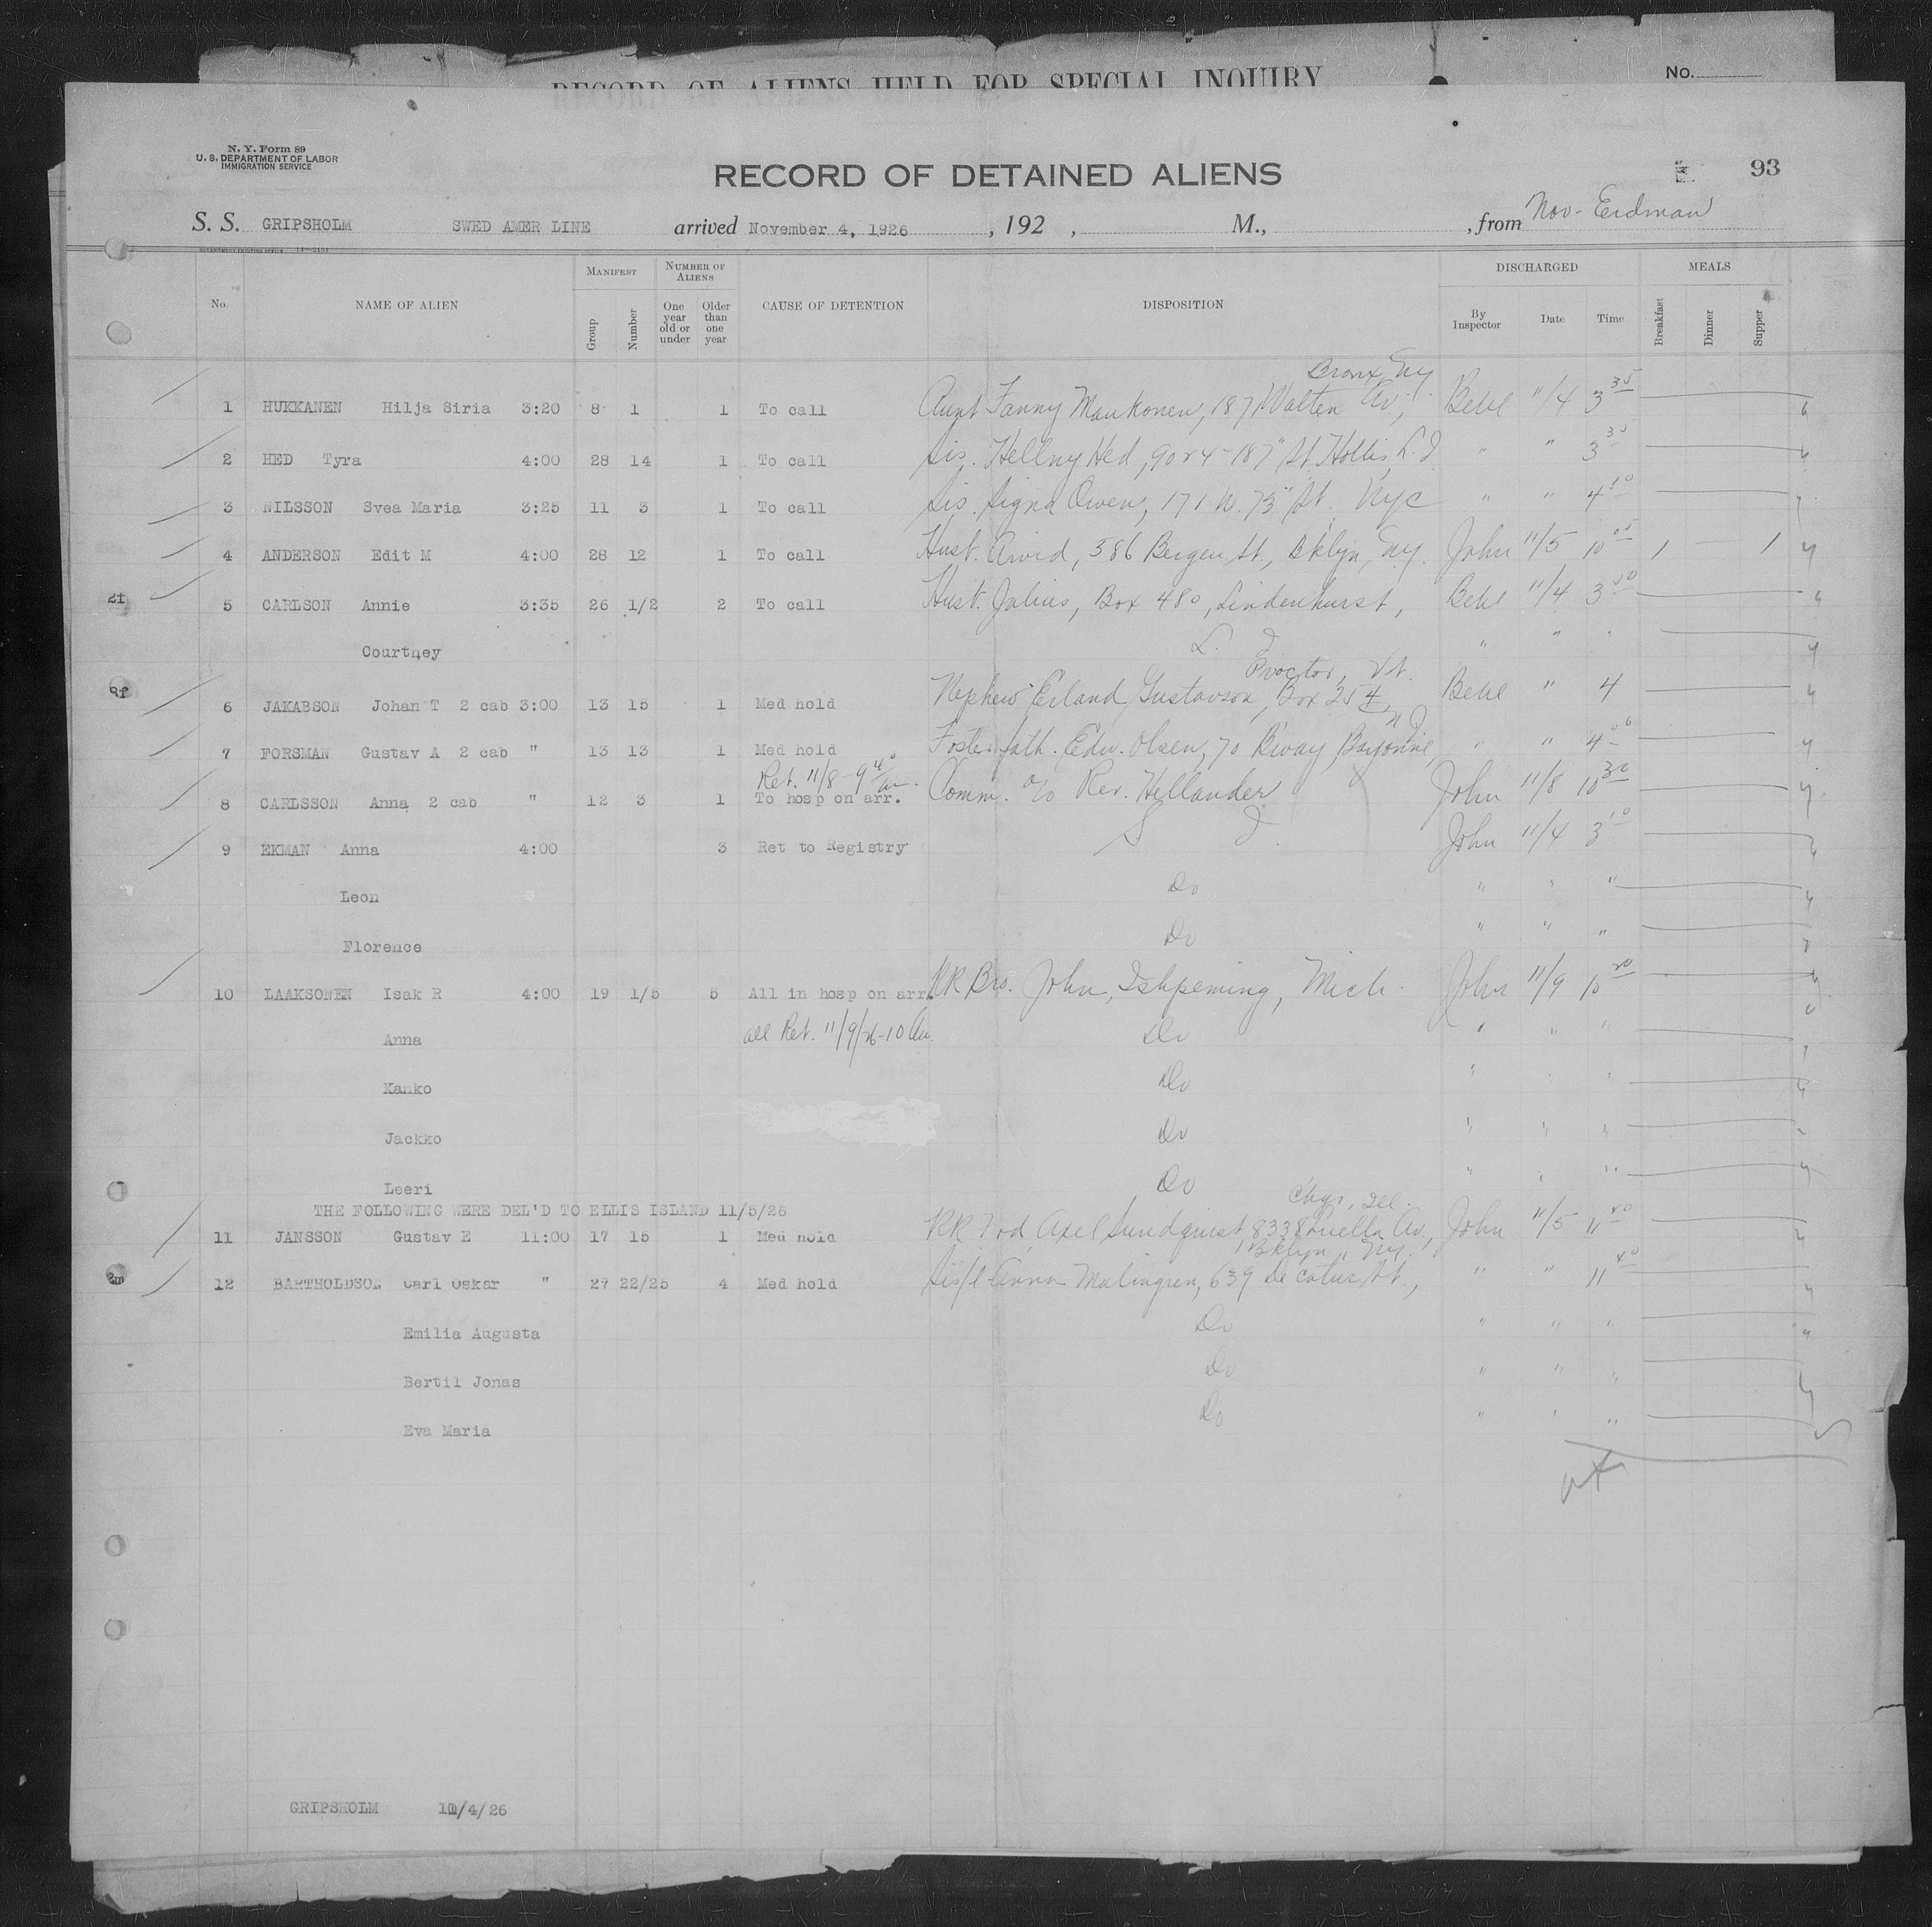 RECORD OF ALIENS HELD FOR SPECIAL INQUIRY
No.
N. Y. Form 89
U. S. DEPARTMENT OF LABOR
IMMIGRATION SERVICE
RECORD OF DETAINED ALIENS
93
S. S. GRIPSHOLM SWED AMER LINE arrived November 4, 1926, 192 , M., , from Nov- Erdman
No. NAME OF ALIEN MANIFEST Group Number NUMBER OF ALIENS One year old or under Older than one year CAUSE OF DETENTION DISPOSITION DISCHARGED By Inspector Date Time MEALS Breakfast Dinner Supper
Bronx, Ny
1 HUKKANEN Hilja Siria 3:20 8 1 1 To call Aunt Fanny Maukonen, 1871 Walten Av, Bebe 11/4 3 35
2 HED Tyra 4:00 28 14 1 To call Sis. Hellny Hed, 9024-187" St Hollis, L. I " " 3 30
3 NILSSON Svea Maria 3:25 11 3 1 To call Sis. Signa Owen, 171 W. 73" St. Nyc " " 4 10
4 ANDERSON Edit M 4:00 28 12 1 To call Husb. Arvid, 386 Bergen St., Bklyn, Ny. John 11/5 10 05 1 — 1
2f 5 CARLSON Annie 3:35 26 1/2 2 To call Husb. Julius, Box 480, Lindenhurst, Bebe 11/4 3 50
Courtney L. I " " "
Proctor, Vt.
6 JAKABSON Johan T 2 cab 3:00 13 15 1 Med hold Nephew Erland Gustavson, Box 254, Bebe " 4
N J
7 FORSMAN Gustav A 2 cab " 13 13 1 Med hold Foster fath. Edw. Olsen, 70 B'way, Bayonne, " " 4 06
Ret. 11/8 - 9 40 am.
8 CARLSSON Anna 2 cab " 12 3 1 To hosp on arr. Comm. c/o Rev. Hellander John 11/8 10 30
9 EKMAN Anna 4:00 3 Ret to Registry S I John 11/4 3 10
Leon Do " " "
Florence Do " " "
10 LAAKSONEN Isak R 4:00 19 1/5 5 All in hosp on arr. RR Bro. John, Ishpeming, Mich. John 11/9 10 20
Anna all Ret. 11/9/26-10 Am. Do " " "
Kanko Do " " "
Jackko Do " " "
Leeri Do " " "
THE FOLLOWING WERE DEL'D TO ELLIS ISLAND 11/5/26 Chgo, Ill.
11 JANSSON Gustav E 11:00 17 15 1 Med hold RR Frd Axel Sundquist, 8338 Luella Av, John 11/5 11 40
Bklyn, Ny.
2m 12 BARTHOLDSON Carl Oskar " 27 22/25 4 Med hold Sis/l Anna Malmgren, 639 Decatur St., " " 11 40
Emilia Augusta Do " " "
Bertil Jonas Do " " "
Eva Maria Do " " "
GRIPSHOLM 11/4/26